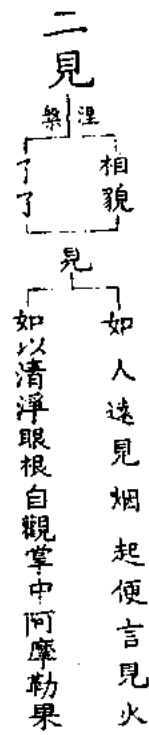 二見
涅槃
相貌
了了
見
如人遠見烟起便言見火
如以清淨眼根自觀掌中阿摩勒果